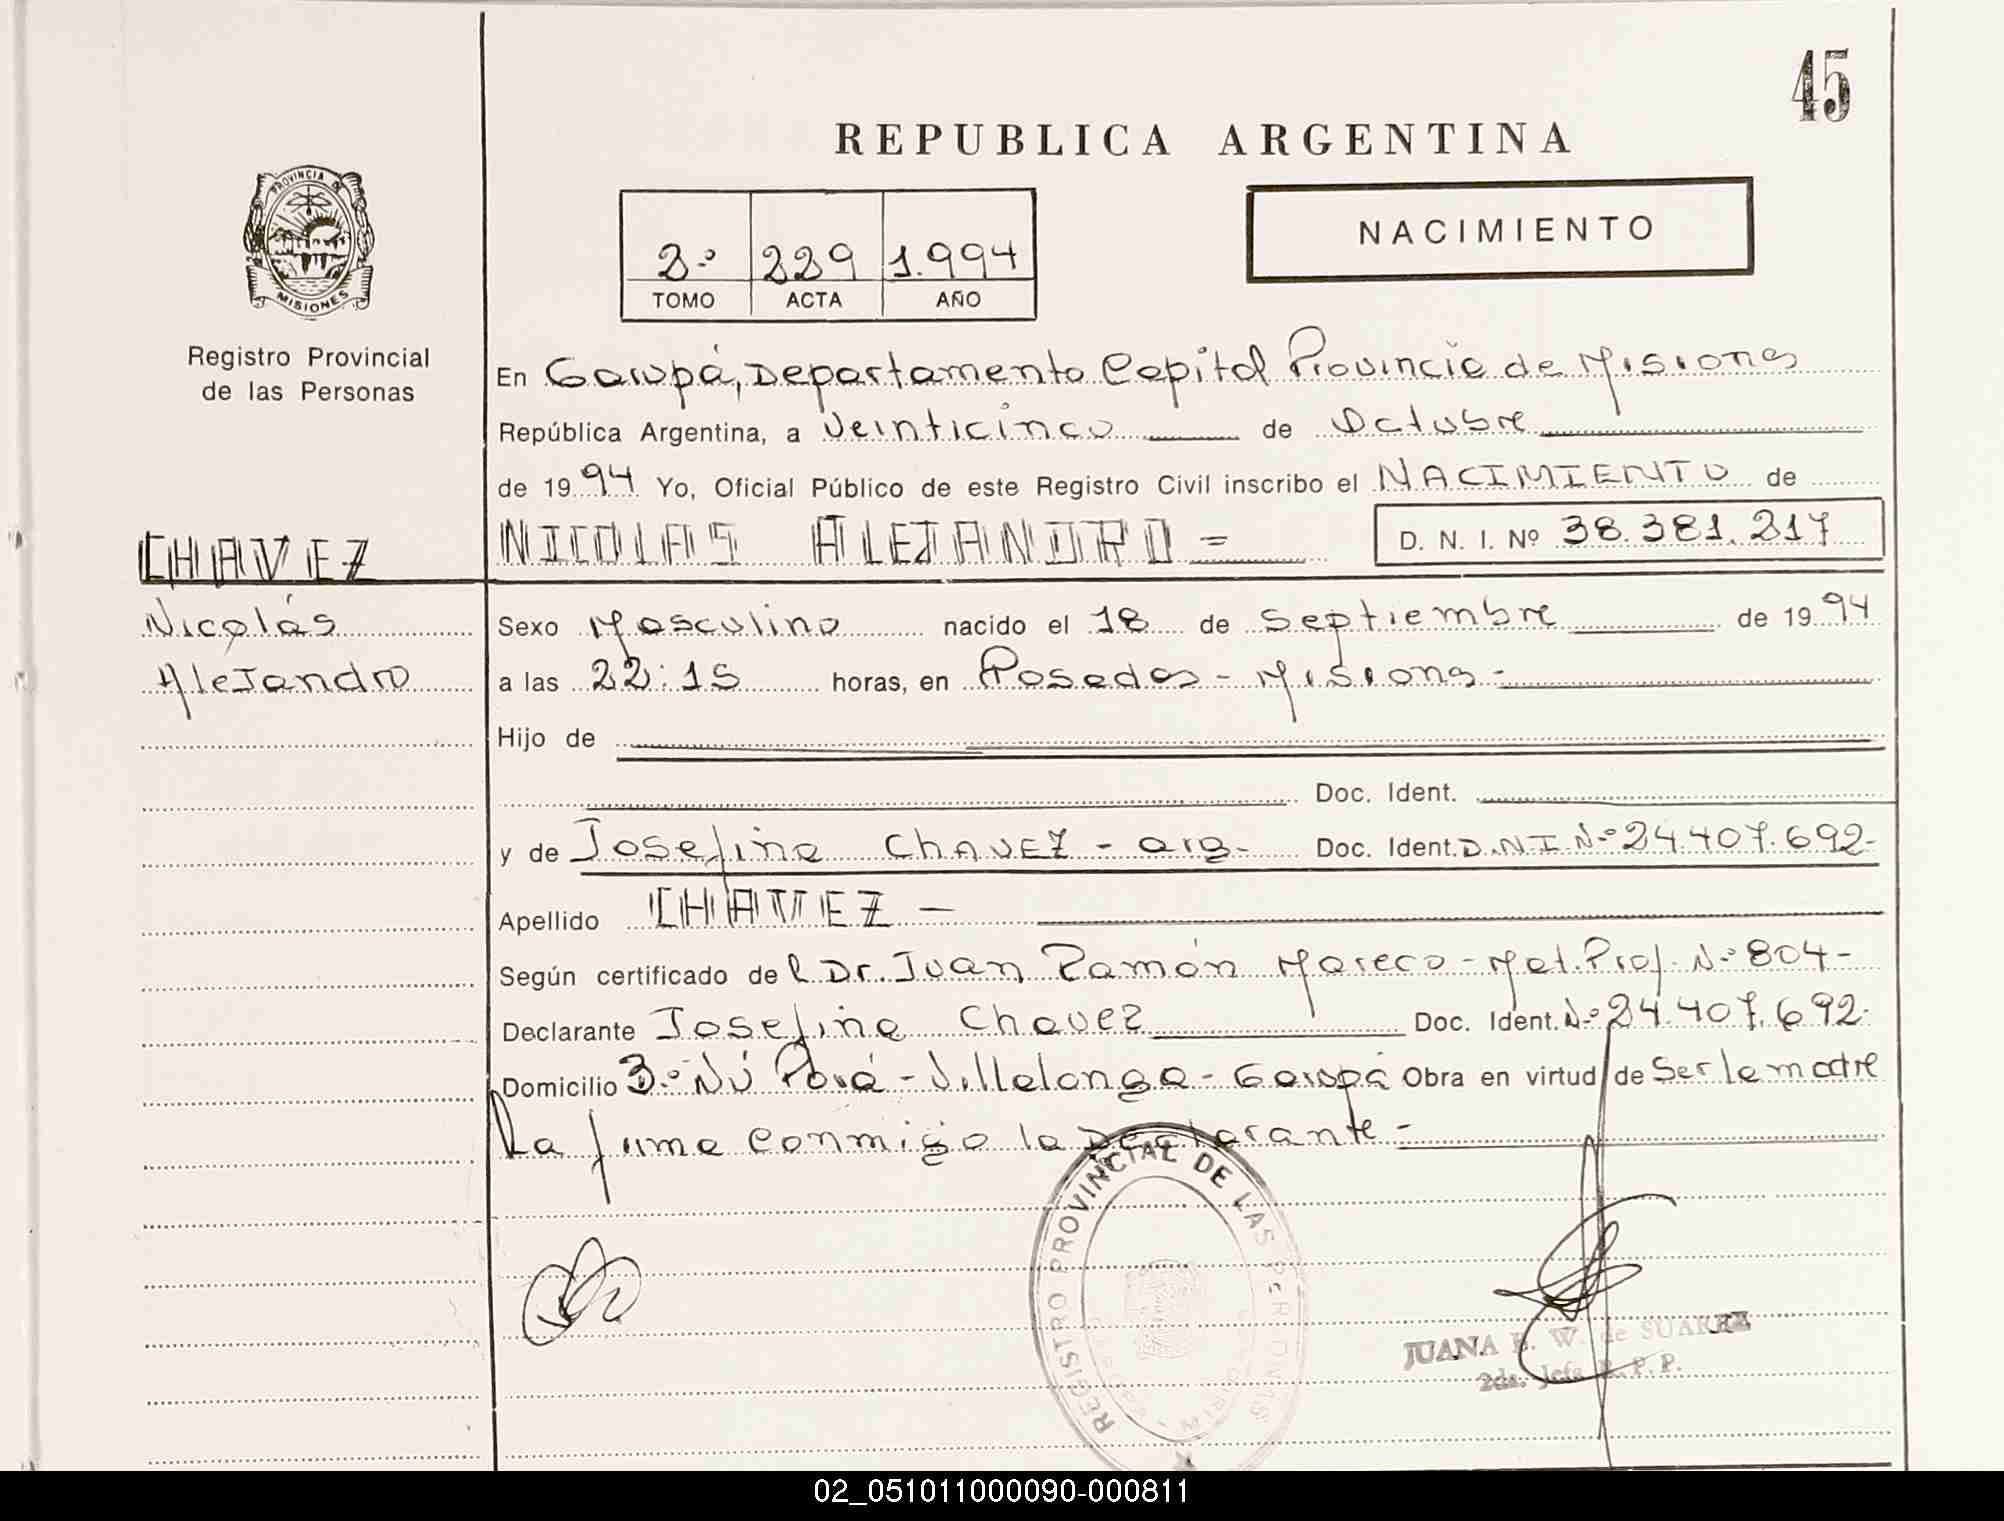 45
REPUBLICA ARGENTINA
PROVINCIA DE
MISIONES
Registro Provincial
de las Personas
2.º 229 1.994
TOMO ACTA AÑO
NACIMIENTO
En Garupá, Departamento Capital Provincia de Misiones
República Argentina, a Veinticinco de Octubre
de 1994 Yo, Oficial Público de este Registro Civil inscribo el NACIMIENTO de
CHAVEZ
NICOLAS ALEJANDRO =
D. N. I. Nº 38.381.217
Nicolás
Alejandro
Sexo Masculino nacido el 18 de Septiembre de 1994
a las 22:15 horas, en Posadas - Misiones -
Hijo de
Doc. Ident.
y de Josefina CHAVEZ - arg - Doc. Ident. D.N.I Nº 24.407.692-
Apellido CHAVEZ -
Según certificado del Dr. Juan Ramón Mareco - Mat. Prof. Nº 804 -
Declarante Josefina Chavez Doc. Ident. Nº 24.407.692-
Domicilio 3º Ñú Porá - Villalonga - Garupá Obra en virtud de Ser la madre
La firma conmigo la Declarante -
REGISTRO PROVINCIAL DE LAS PERSONAS
JUANA E. W. de SUAREZ
2da. Jefa R. P. P.
02_051011000090-000811